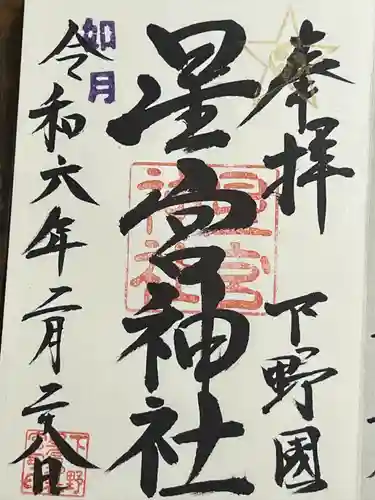 奉拝
下野國
星宮神社
星宮神社
如月
令和六年二月二八日